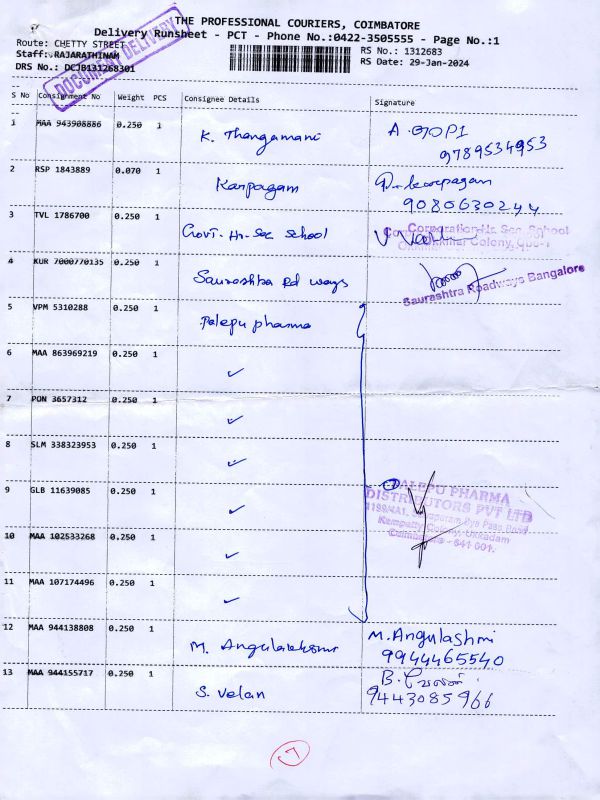 THE PROFESSIONAL COURIERS, COIMBATORE
Delivery Runsheet - PCT - Phone No.:0422-3505555 - Page No.:1
Route: CHETTY STREET
RS No.: 1312683
Staff: RAJARATHINAM
RS Date: 29-Jan-2024
DRS No.: DCJB131268301
DOCUMENT DELIVERY
S No Consignment No Weight PCS Consignee Details Signature
1 MAA 943908886 0.250 1 K. Thangamani A. GOPI
9789534953
2 RSP 1843889 0.070 1 Karpagam
9080630244
3 TVL 1786700 0.250 1 Govt. Hr. Sec School
Corporation Hr. Sec. School
Colony, Cbe-1
4 KUR 7000770135 0.250 1 Saurashtra Rd ways
Saurashtra Roadways Bangalore
5 VPM 5310288 0.250 1 Palepu pharma
6 MAA 863969219 0.250 1 ✓
7 PON 3657312 0.250 1 ✓
8 SLM 338323953 0.250 1 ✓
9 GLB 11639085 0.250 1 ✓
PALEPU PHARMA
DISTRIBUTORS PVT LTD
Bye Pass Road
Kempatty Colony, Ukkadam
Coimbatore - 641 001.
10 MAA 102533268 0.250 1 ✓
11 MAA 107174496 0.250 1 ✓
12 MAA 944138808 0.250 1 M. Angulakshmi M. Angulashmi
9944465540
13 MAA 944155717 0.250 1 S. Velan B.
9443085966
7